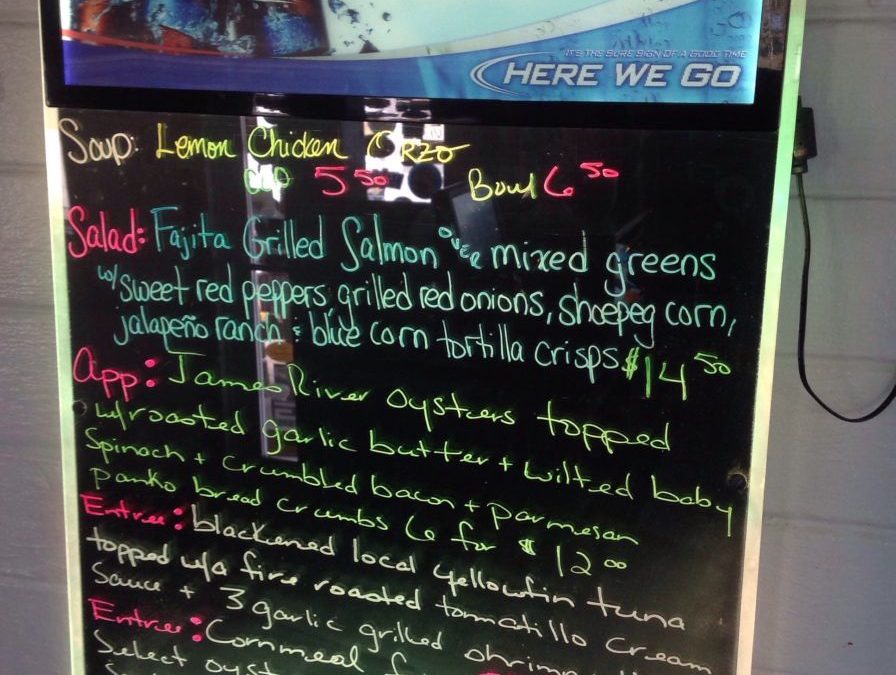 IT'S THE SURE SIGN OF A GOOD TIME
HERE WE GO
Soup: Lemon Chicken Orzo
Cup 5 50 Bowl 6 50
Salad: Fajita Grilled Salmon over mixed greens
w/ sweet red peppers, grilled red onions, shoepeg corn,
jalapeño ranch & blue corn tortilla crisps $14 50
App: James River oysters topped
w/ roasted garlic butter + wilted baby
Spinach + crumbled bacon + parmesan
panko bread crumbs 6 for $12 00
Entree: blackened local yellowfin tuna
topped w/ a fire roasted tomatillo cream
Sauce + 3 garlic grilled shrimp
Entree: Cornmeal
Select